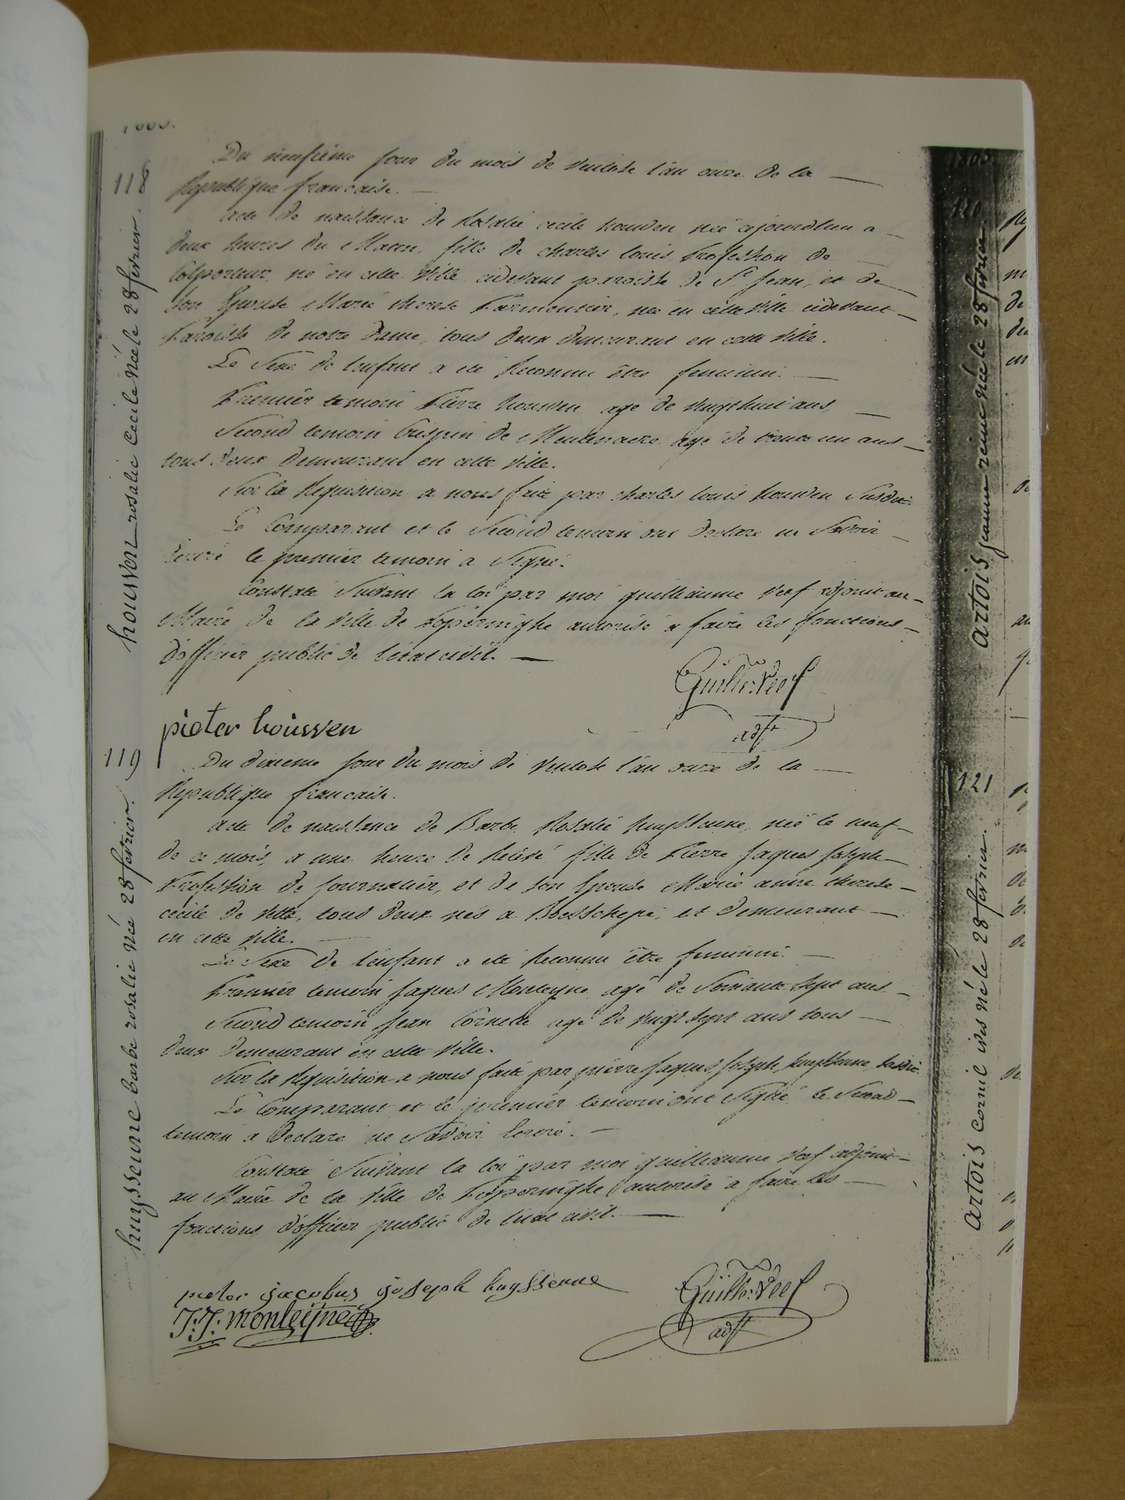 1803.
118
houven rosalie Cecile née le 28 fevrier.
Du neufieme jour du mois de ventose l'an onze de la
Republique francaise.
Acte de naissance de Rosalie cecile houven née ajourdhui a
deux heures du Matin, fille de charles louis Profession de
Colporteur, né en cette Ville cidevant paroisse de St. Jean, et de
son Epouse Marie therese Parmentier, née en cette Ville cidevant
Paroisse de notre Dame, tous deux demeurant en cette Ville.
Le Sexe de l'enfant a eté Reconnu être feminin.
Premier temoin Pierre houven agé de vingt huit ans
Second temoin Crispin de Meulenaere agé de trente un ans
tous deux Demeurant en cette Ville.
Sur la Requisition a nous fait par charles louis houven Susdit.
Le Comparant et le Second temoin ont Declaré ne Savoir
Ecrire le premier temoin a Signé.
Constaté Suivant la loi par moi guilliaume Veef adjoint au
Maire de la Ville de Poperinghe autorisé a faire les fonctions
d'officier public de l'etat civil.
Guilli: Veef
adjt
pieter houssen
119
huyssenne barbe rosalie née 28 fevrier.
Du dixieme jour du mois de Ventose l'an onze de la
Republique francaise.
Acte de naissance de Barbe Rosalie huyssenne, née le neuf
de ce mois, a une heure de Relevé fille de Pierre Jaques Joseph
Profession de Journalier, et de son Epouse Marie anne therese
cecile de Vette, tous deux nés a Boesschepe, et demeurant
en cette Ville.
Le Sexe de l'enfant a eté Reconnu être feminin.
Premier temoin Jaques Monteyne agé de Soixante Sept ans
Second temoin Jean Cornette agé de vingt Sept ans tous
deux Demeurant en cette Ville.
Sur la Requisition a nous faite par pierre Jaques Joseph huyssenne Susdit.
Le Comparant et le premier temoin ont Signé le Second
temoin a Declaré ne Savoir Ecrire.
Constaté Suivant la loi par moi guilliaume Veef adjoint
au Maire de la Ville de Poperinghe autorisé a faire les
fonctions d'officier public de l'etat civil.
pieter jacobus joseph huyssenne
J. J: Monteijne
Guilli: Veef
adjt
1803
120
artois jeanne reine née le 28 fevrier
121
artois cornil ives né le 28 fevrier.